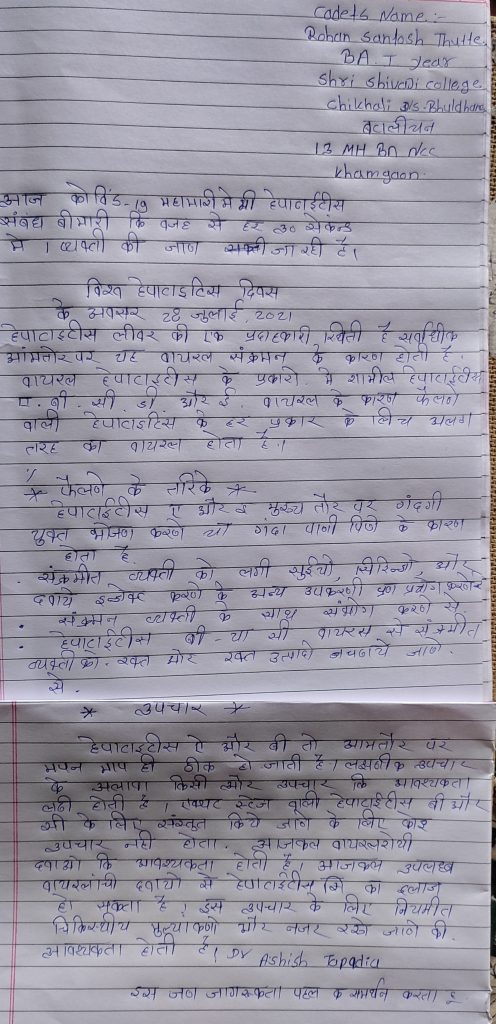 Cadets Name :-
Rohan Santosh Thutte
BA I year
Shri Shivaji college
Chikhali Dis. Bhuldhana
बटालीयन
13 MH BN NCC
Khamgaon.
आज कोविड-19 महामारी मे भी हेपाटाईटीस
संबंध बीमारी कि वजह से हर 30 सेकन्ड
मे 1 व्यक्ती की जाण जा रही है।
विश्व हेपाटाइटिस दिवस
के अवसर 28 जुलाई 2021
हेपाटाईटीस लीवर की एक प्रदाहकारी स्थिती है सर्वाधीक
आमतोर पर यह वायरल संक्रमन के कारण होती है.
वायरल हेपाटाईटीस के प्रकारो. मे शामील हेपाटाईटीस
ए. बी. सी. डी और ई. वायरल के कारण फैलणे
वाली हेपाटाइटिस के हर प्रकार के लिच अलग
तरह का वायरल होता है।
* फैलणे के तरिके *
हेपाटाईटीस ए और इ मुख्य तौर पर गंदगी
युक्त भोजण करणे या गंदा पाणी पिणे के कारण
होता है.
. संक्रमीत व्यक्ती को लगी सुईयो, सिरिन्जो, और
दवाये इन्जेक्ट करणे के अन्य उपकरणो का प्रयोग करणेसे
. संक्रमन व्यक्ती के साथ संभोग करणे से.
. हेपाटाईटीस बी - या सी वायरस से संक्रमीत
व्यक्ती को. रक्त और रक्त उत्पादो जाणे.
से.
* उपचार *
हेपाटाईटीस ऐ और बी तो आमतौर पर
अपन आप ही ठीक हो जाती है। लक्षणीक उपचार
के अलावा किसी और उपचार कि आवश्यकता
नही होती है। एक्यट स्टेज वाली हेपाटाईटीस बी और
सी के लिए संस्तुत किये जाणे के लिए कोइ
उपचार नही होता. आजकल वायरलरोधी
दवाओ कि आवश्यकता होती है। आजकल उपलब्ध
वायरलांची दवायो से हेपाटाईटीस सि का इलाज
हो सकता है। इस उपचार के लिए नियमीत
चिकित्सीय मुल्याकणो और नजर रखे जाणे की.
आवश्यकता होती है। Dr Ashish Tapadia
इस जण जागरूकता पहल क समर्थन करता हू